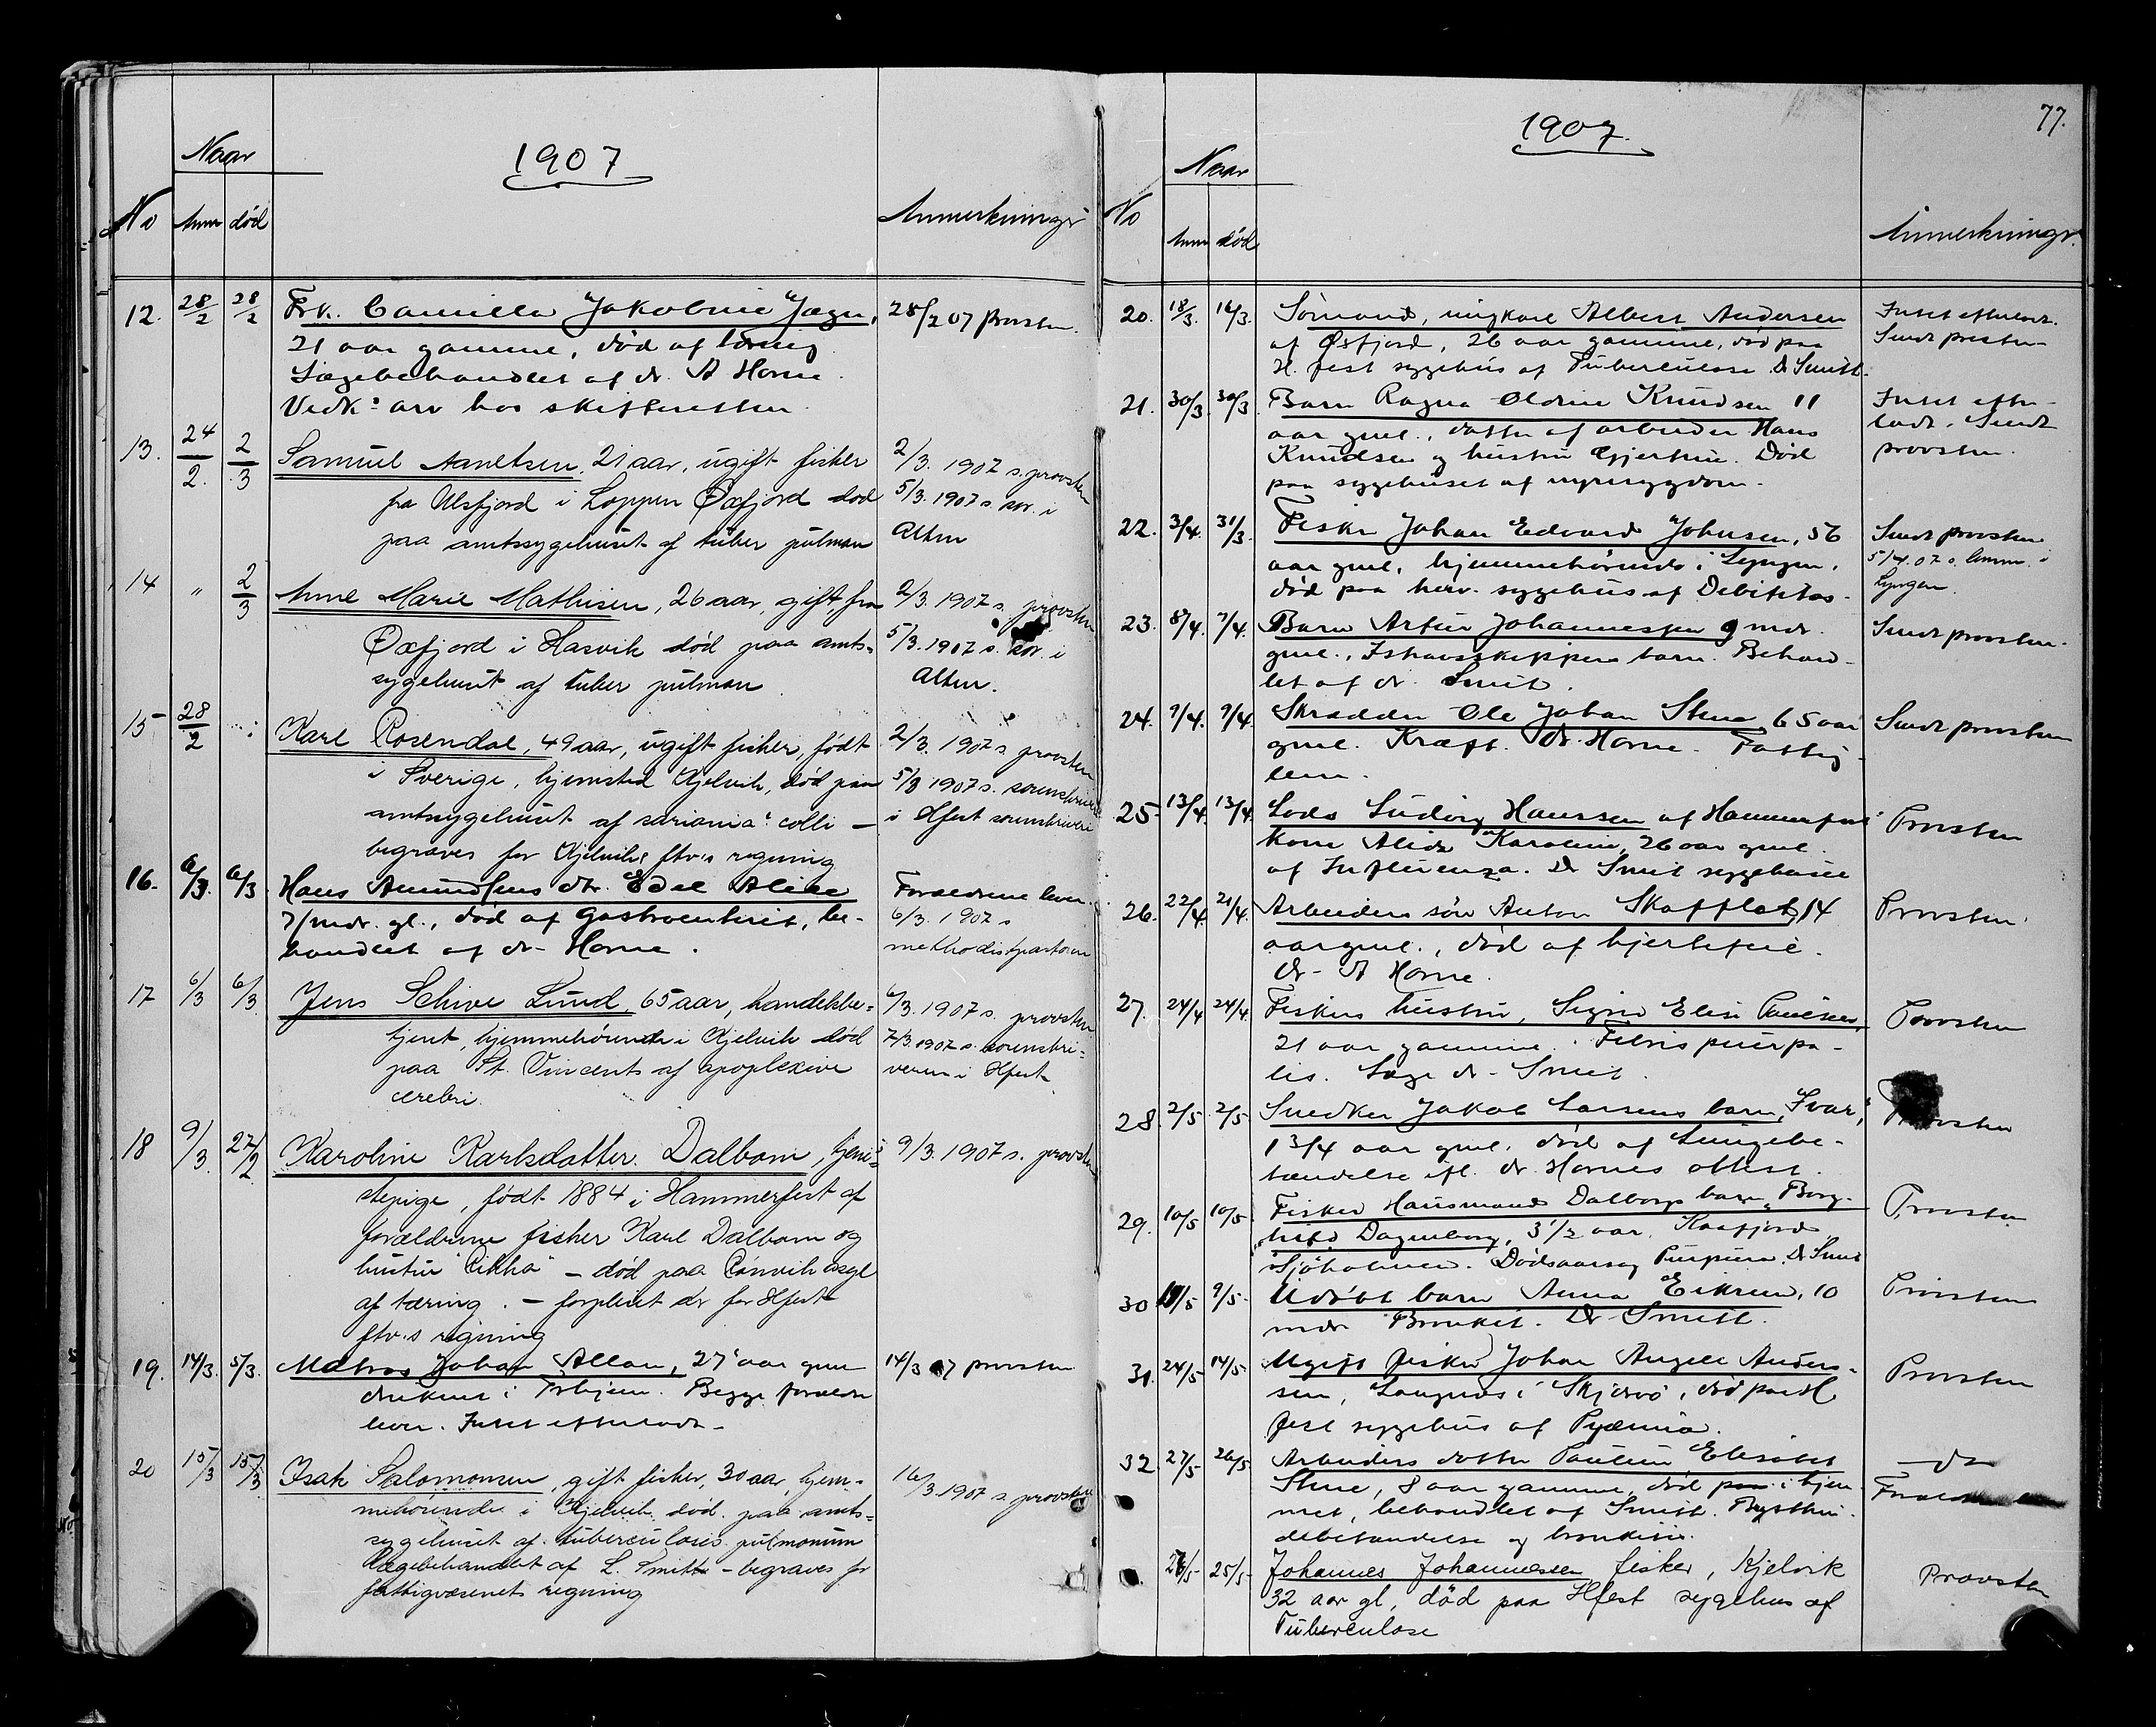 1907
Naar
No Anm død Anmerkninger
12. 28/2 28/2 Frk. Camilla Jakobine Jæger, 28/2 07 provsten.
21 aar gammel, død af tæring
Lægebehandlet af dr. A Horne.
Vedk: arv hos skifteretten.
13. 24/2. 2/3 Samuel Aareltsen, 21 aar, ugift fisker 2/3. 1907 s. provsten
fra Ulsfjord i Loppen Øxfjord død 5/3. 1907 s. sor. i
paa amtssygehuset af tuber pulmon Alten
14 " 2/3 Anne Marie Mathisen, 26 aar, gift, fra 2/3. 1907 s. provsten
Øxfjord i Hasvik død paa amts= 5/3. 1907 s. sor. i
sygehuset af tuber pulmon Alten.
15 28/2 Karl Rosendal, 49 aar, ugift fisker, født 2/3. 1907 s. provsten
i Sverige, hjemsted Kjelvik, død paa 5/3 1907 s. sorenskriver
amtssygehuset af colli — i Hfest sorenskriveri
begraves for Kjelviks ftv.s regning
16. 6/3. 6/3 Hans Amundsens dtr. Edel Alice Forældrene lever.
7/mdr. gl., død af Gastroenterit, be- 6/3. 1907 s
handlet af dr- Horne. methodistpastoren
17 6/3 6/3 Jens Schive Lund, 65 aar, handelsbe= 6/3. 1907 s. provsten
tjent, hjemmehørende i Kjelvik død 7/3. 1907 s. sorenskri-
paa St. Vincents af apoplexive veren i Hfest
cerebri.
18 9/3. 27/2 Karoline Karlsdatter Dalbom, tjene= 9/3. 1907 s. provsten
stepige, født 1884 i Hammerfest af
forældrene fisher Karl Dalbom og
hustru "Rikka" — død paa Rønvik asyl
af tæring. — forpleiet der for Hfest
ftv.s regning
19. 14/3. 5/3. Matros Johan Allan, 27 aar gml 14/3 07 provsten
druknet i Trhjem. Begge forældre
lever. Intet efterladt.
20 15/3 15/3 Isak Salomonsen, gift fisker, 30 aar, hjem- 16/3. 1907 s. provsten
mehørende i Kjelvik, død. paa amts=
sygehuset af tuberculosis pulmonum
Lægebehandlet af L. Smitt - begraves for
fattigvæsenets regning
77.
1907.
Naar
No Anm død Anmerkninger.
20. 18/3. 16/3. Sømand, ungkarl Albert Andersen Intet efterladt.
af Øsfjord, 26 aar gammel, død paa Sendt provsten
H. fest sygehus af Tuberculose. Dr Smitt.
21. 30/3. 30/3 Barn Ragna Oldine Knudsen 11 Intet efter-
aar gml., datter af arbeider Hans ladt. Sendt
Knudsen og hustru Gjertine. Død provsten.
paa sygehuset af nyresygdom.
22. 3/4. 31/3. Fisker Johan Edvard Johnsen, 56 Sendt provsten
aar gml, hjemmehørende i Lyngen, 5/4. 07 s. lensm. i
død paa herv. sygehus af Debilitas. Lyngen.
23. 8/4. 7/4. Barn Artur Johannessen 9 mdr. Sendt provsten.
gml., Ishavsskippers barn. Behand-
let af dr. Smit.
24. 9/4. 9/4. Skrædder Ole Johan Stene 65 aar Sendt provsten
gml. Kræft. Dr. Horne. Fattig-
lem.
25 13/4. 13/4. Lods Ludvig Hanssen af Hammerfest Provsten
kone Alida Karoline, 26 aar gml.
af Influenza. Dr Smit sygehuset
26. 22/4. 21/4. Arbeiders søn Anton Skafflat, 14 Provsten.
aar gml., død af hjertefeil.
dr- A Horne.
27. 24/4 24/4. Fiskers hustru, Sigrid Elise Paulsen, Provsten
21 aar gammel. Febris puerpa-
lis. Læge dr- Smit.
28. 2/5. 2/5. Snedker Jakob Larsens barn, "Ivar", Provsten
1 3/4 aar gml. død af Lungebe-
tændelse ifl. dr. Hornes attest.
29. 10/5 10/5. Fisker Hansmand Dalborgs barn "Borg- Provsten
hild Dagneborg, 3 1/2 aar. Kaafjord
Sjøholmen. Dødsaarsag Purpura. Dr. Smit
30 11/5 9/5. Udøbt barn Anna Eikrem, 10 Provsten
mdr. Bronkit. Dr Smitt.
31. 24/5 14/5. Ugift fisker Johan Angell Anders- Provsten
sen, Langnes i Skjervø, død paa H
fest sygehus af Pyæmia.
32. 27/5 26/5. Arbeiders datter Pauline Elisabet —do
Stene, 8 aar gammel, død i hjem-
met, behandlet af Smitt. Brysthin-
debetændelse og bronkitis.
26/5 25/5 Johannes Johannessen fisker, Kjelvik Provsten
32 aar gl, død paa Hfest sygehus af
Tuberculose